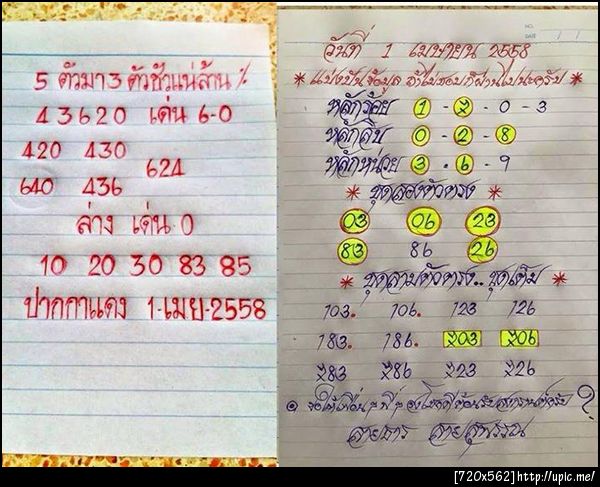 5 ตัวมา 3 ตัวชัวแน่ล้าน %
43620 เด่น 6-0
420 430
624
640 436
ล่าง เด่น 0
10 20 30 83 85
ปากกาแดง 1-เม.ย-2558
NO.
DATE / /
วันที่ 1 เมษายน 2558
* แบ่งปันข้อมูล ถ้าไม่ชอบก็ผ่านไปนะครับ *
หลักร้อย 1 - 7 - 0 - 3
หลักสิบ 0 - 2 - 8
หลักหน่วย 3 - 6 - 9
* ชุดสองตัวตรง *
03 06 23
83 86 26
* ชุดสามตัวตรง.. ชุดเต็ม *
103. 106. 123 126
183. 186. 703 706
783 786 723 726
ขอให้เพื่อน ๆ พี่ ๆ
สายธาร สายสุพรรณ
[720x562]http://upic.me/